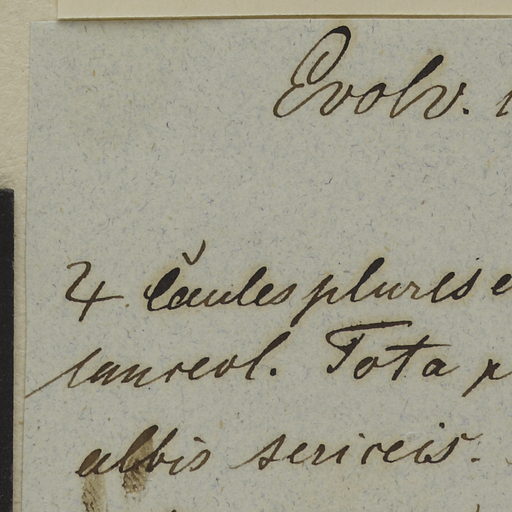 Evolv.
♃ Caules plures
lanceol. Tota
albis sericeis.